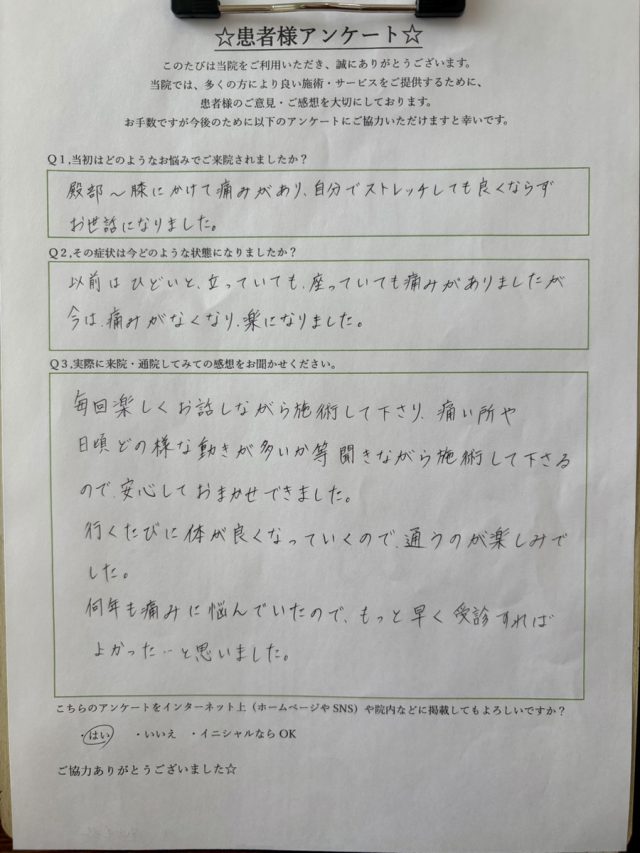 ☆患者様アンケート☆
このたびは当院をご利用いただき、誠にありがとうございます。
当院では、多くの方により良い施術・サービスをご提供するために、
患者様のご意見・ご感想を大切にしております。
お手数ですが今後のために以下のアンケートにご協力いただけますと幸いです。
Q1,当初はどのようなお悩みでご来院されましたか？
殿部～膝にかけて痛みがあり、自分でストレッチしても良くならず
お世話になりました。
Q2,その症状は今どのような状態になりましたか？
以前はひどいと、立っていても、座っていても痛みがありましたが
今は、痛みがなくなり、楽になりました。
Q3,実際に来院・通院してみての感想をお聞かせください。
毎回楽しくお話しながら施術して下さり、痛い所や
日頃どの様な動きが多いか等聞きながら施術して下さる
ので、安心しておまかせできました。
行くたびに体が良くなっていくので、通うのが楽しみで
した。
何年も痛みに悩んでいたので、もっと早く受診すれば
よかった…と思いました。
こちらのアンケートをインターネット上（ホームページやSNS）や院内などに掲載してもよろしいですか？
・はい ・いいえ ・イニシャルならOK
ご協力ありがとうございました☆